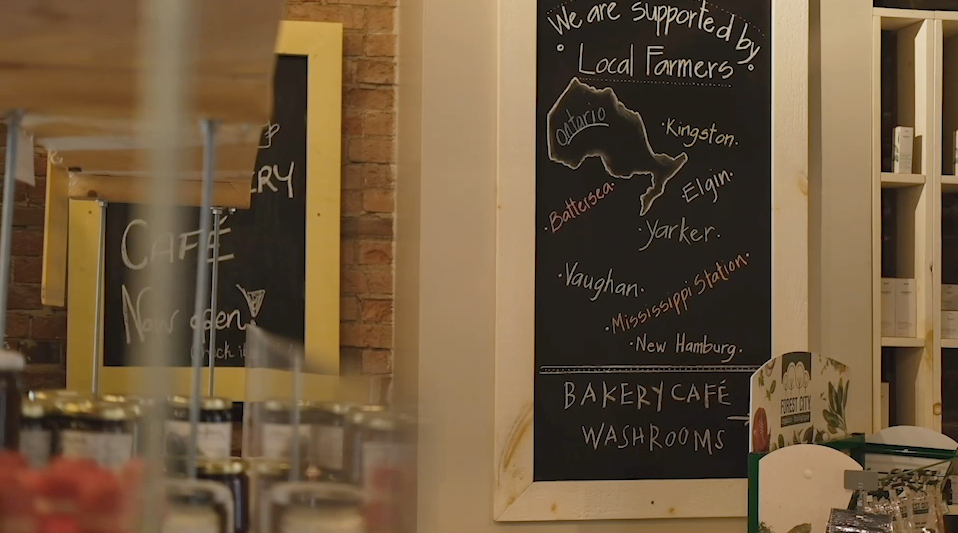 We are supported by
Local Farmers
Ontario
Kingston
Elgin
Battersea
Yarker
Vaughan
Mississippi Station
New Hamburg
BAKERY CAFÉ
WASHROOMS
ERY
CAFÉ
Now open
FOREST CITY